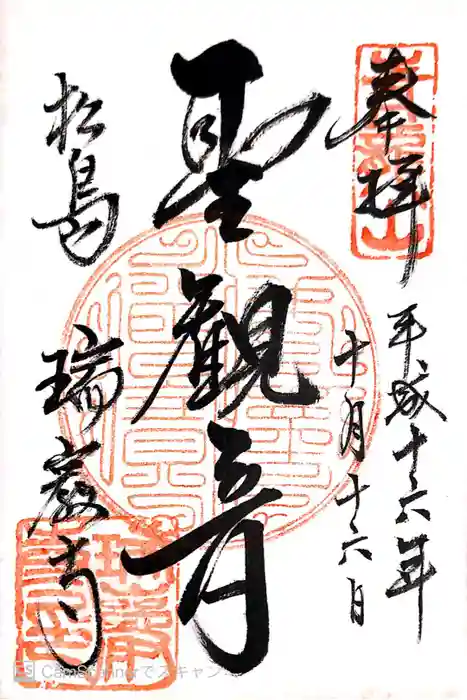 奉拝
平成十六年
十月十六日
聖觀音
松島
瑞巌寺
CamScannerでスキャン